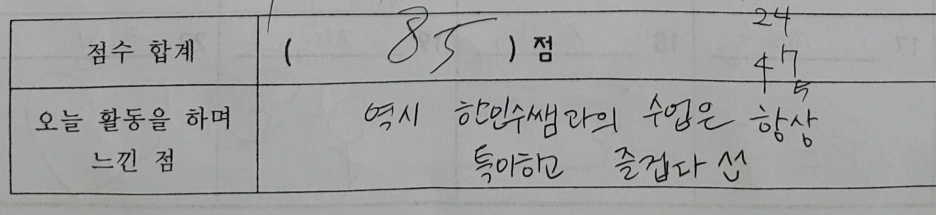 점수 합계 ( 85 ) 점
24
47
5
오늘 활동을 하며
느낀 점
역시 한민수쌤과의 수업은 항상
특이하고 즐겁다